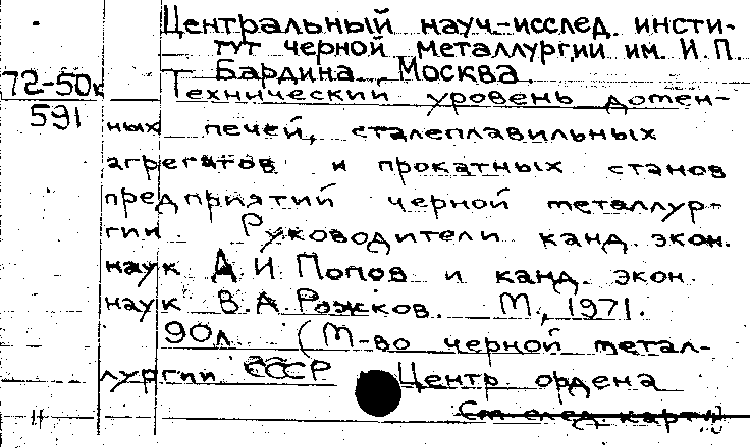 Центральный науч-исслед. инсти-
тут черной металлургии им. И.П.
Бардина, Москва.
72-50к
591
Технический уровень домен-
ных печей, сталеплавильных
агрегатов и прокатных станов
предприятий черной металлур-
гии. Руководители канд. экон.
наук А.И. Попов и канд. экон.
наук В.А. Рожков. М., 1971.
90л. (М-во черной метал-
лургии СССР Центр. ордена
См след. карту
11